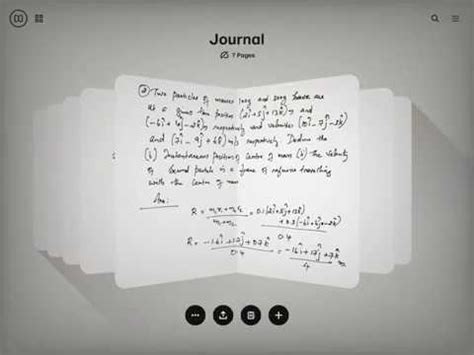 Journal
7 Pages
2) Two particles of masses 100g and 300g have
at a given time position (2i + 5j + 13k) m and
(-6i + 4j - 2k) m respectively and velocities (10i - 7j - 3k)
and (7i - 9j + 6k) m/s respectively. Deduce the
(a) Instantaneous position of centre of mass (b) The velocity
of second particle in a frame of reference travelling
with the centre of mass
Ans:
R = m₁r₁ + m₂r₂ / m₁ + m₂ = 0.1(2i + 5j + 13k) + 0.3(-6i + 4j - 2k) / 0.4
R = -1.6i + 1.7j + 0.7k / 0.4 = -16i + 17j + 7k / 4 m